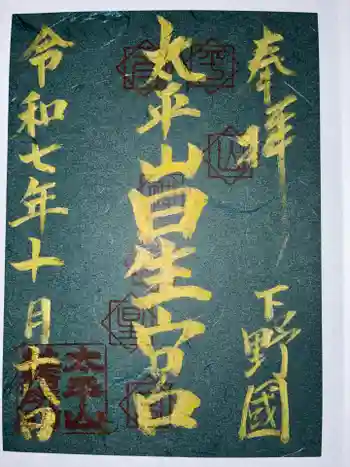 奉拝 下野國
太平山星宮
令和七年十月十八日
太平山